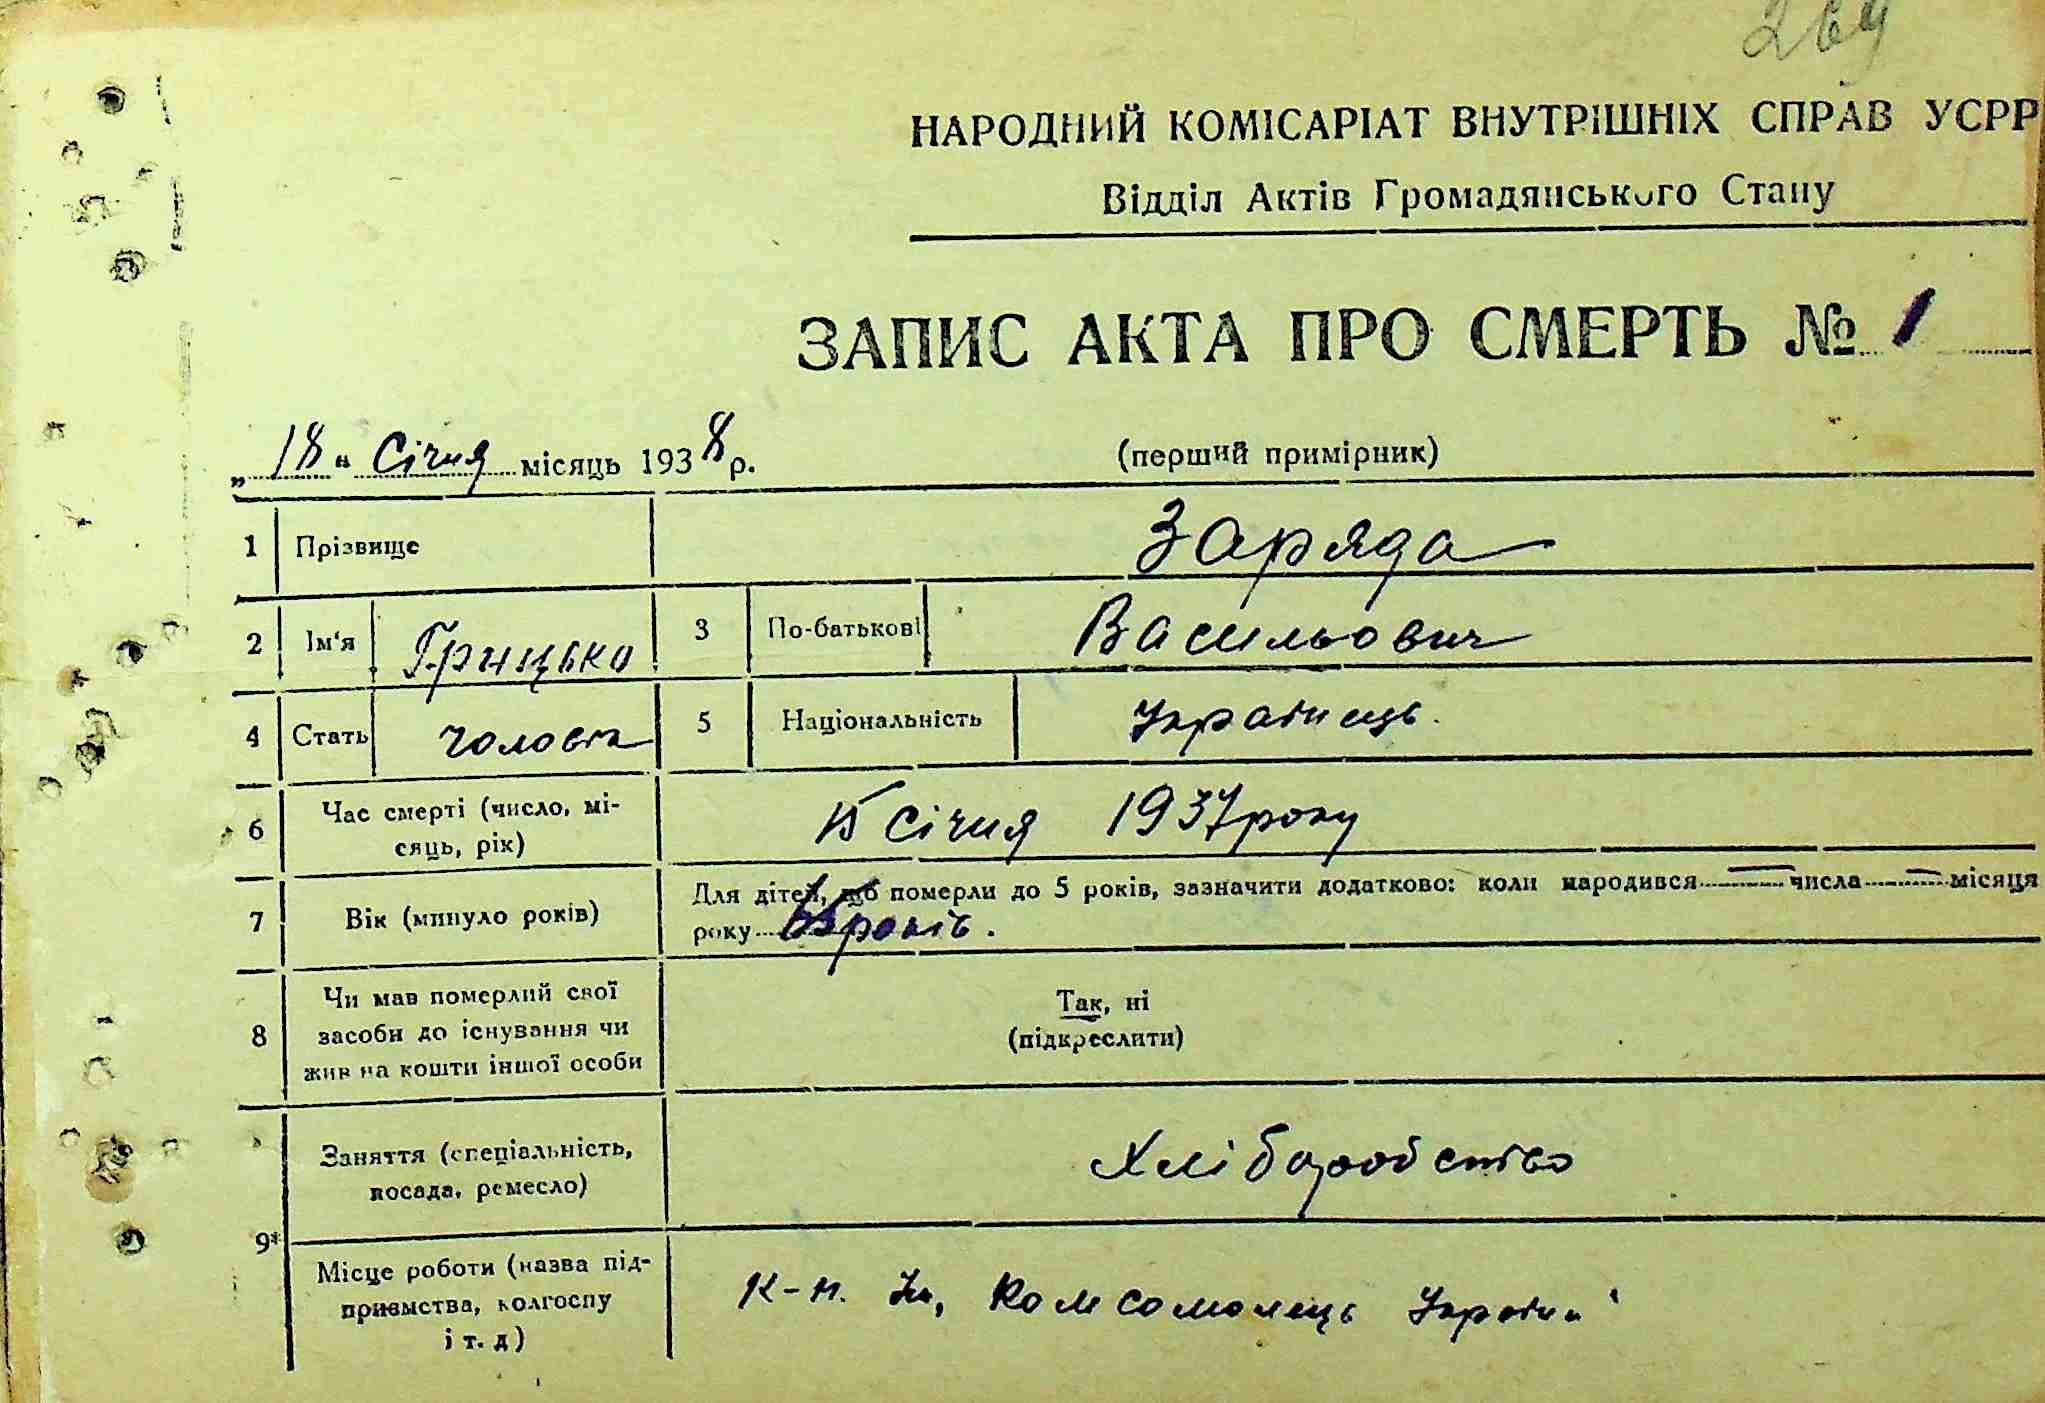 269
НАРОДНИЙ КОМІСАРІАТ ВНУТРІШНІХ СПРАВ УСРР
Відділ Актів Громадянського Стану
ЗАПИС АКТА ПРО СМЕРТЬ № 1
„18“ Січня місяць 1938 р.
(перший примірник)
1 Прізвище Заряда
2 Ім'я Грицько 3 По-батькові Васильович
4 Стать чоловік 5 Національність Українець.
6 Час смерті (число, мі-
сяць, рік)
15 січня 1937 року
7 Вік (минуло років)
Для дітей, що померли до 5 років, зазначити додатково: коли народився — числа — місяця
року років.
8 Чи мав померлий свої
засоби до існування чи
жив на кошти іншої особи
Так, ні
(підкреслити)
9*
Заняття (спеціальність,
посада, ремесло)
Хліборобство
Місце роботи (назва під-
приємства, колгоспу
і т. д)
Комсомолець України